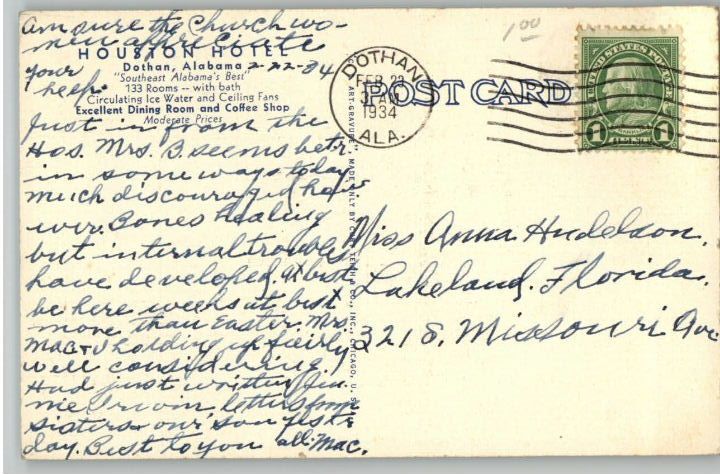 am sure the church wo-
men appreciate
HOUSTON HOTEL
Dothan, Alabama 2-22-34
your
"Southeast Alabama's Best"
help.
133 Rooms -- with bath
Circulating Ice Water and Ceiling Fans
Excellent Dining Room and Coffee Shop
Moderate Prices
Just in from the
Hos. Mrs. B. seems bet'r
in some ways today,
much discouraged how
ever. Bones healing
but internal troubles
have developed. at best
be here weeks at best
more than Easter. Mrs.
Mac & I holding up fairly
well considering.
Had just written
me from letters from
sisters our son yest'r
day. Best to you all. Mac.
1.00
DOTHAN
FEB 23
3 AM
1934
ALA.
POST CARD
UNITED STATES POSTAGE
1 1
"ART-GRAVURE", MADE ONLY BY CURT TEICH & CO., INC., CHICAGO, U. S. A.
Miss Anna Hudelson,
Lakeland, Florida.
321 S. Missouri Ave